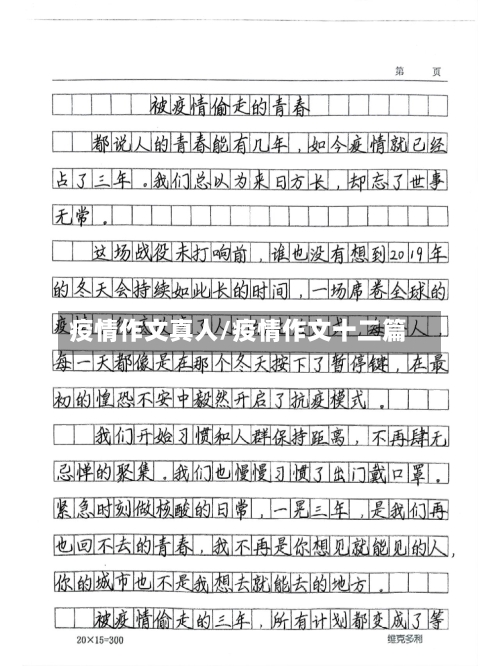 第 页
被疫情偷走的青春
都说人的青春能有几年，如今疫情就已经
占了三年。我们总以为来日方长，却忘了世事
无常。
这场战役未打响前，谁也没有想到2019年
的冬天会持续如此长的时间，一场席卷全球的
疫情作文真人/疫情作文十二篇
每一天都像是在那个冬天按下了暂停键，在最
初的惶恐不安中毅然开启了抗疫模式。
我们开始习惯和人群保持距离，不再肆无
忌惮的聚集。我们也慢慢习惯了出门戴口罩。
紧急时刻做核酸的日常，一晃三年，是我们再
也回不去的青春，我不再是你想见就能见的人，
你的城市也不是我想去就能去的地方。
被疫情偷走的三年，所有计划都变成了等
20×15=300 维克多利